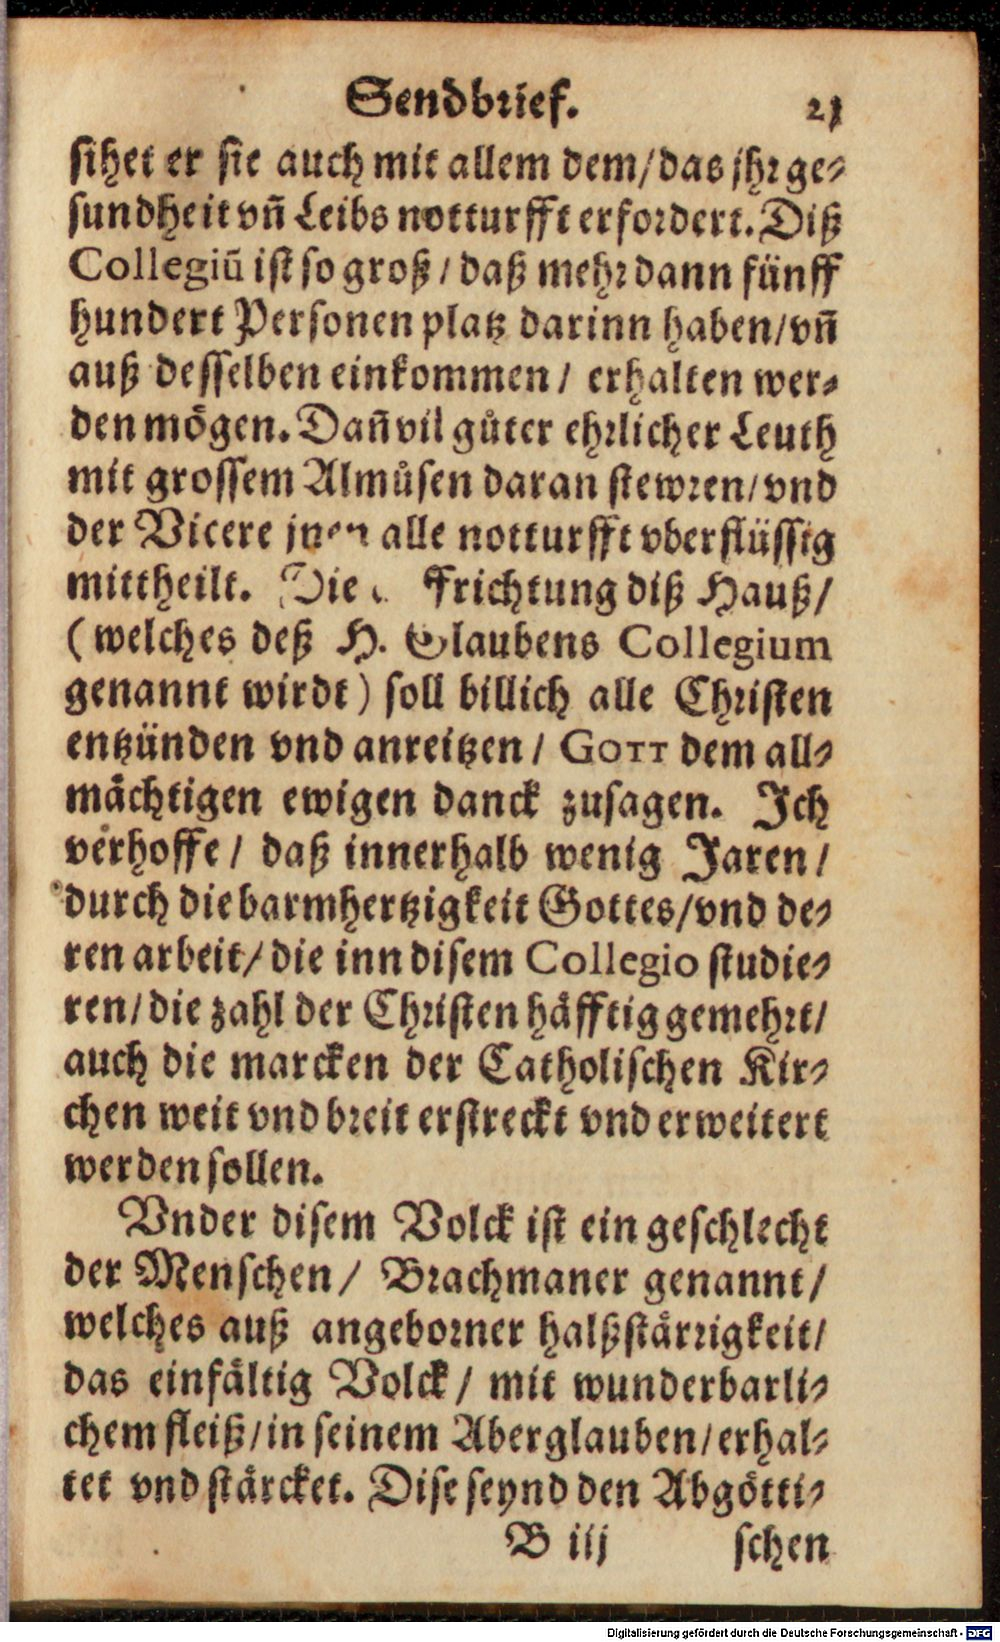 Sendbrief. 21
sihet er sie auch mit allem dem/das jhr ge-
sundheit vñ Leibs notturfft erfordert. Diß
Collegiũ ist so groß/daß mehr dann fünff
hundert Personen platz darinn haben/vñ
auß desselben einkommen/ erhalten wer-
den mögen. Dañ vil gůter ehrlicher Leuth
mit grossem Almůsen daran stewren/vnd
der Vicere jnen alle notturfft vberflüssig
mittheilt. Die ffrichtung diß Hauß/
(welches deß H. Glaubens Collegium
genannt wirdt) soll billich alle Christen
entzünden vnd anreitzen/ GOTT dem all-
mächtigen ewigen danck zusagen. Ich
verhoffe/ daß innerhalb wenig Jaren/
durch die barmhertzigkeit Gottes/vnd de-
ren arbeit/die inn disem Collegio studie-
ren/die zahl der Christen häfftig gemehrt/
auch die marcken der Catholischen Kir-
chen weit vnd breit erstreckt vnd erweitert
werden sollen.
Vnder disem Volck ist ein geschlecht
der Menschen/ Brachmaner genannt/
welches auß angeborner halßstärrigkeit/
das einfältig Volck/ mit wunderbarli-
chem fleiß/in seinem Aberglauben/erhal-
tet vnd stärcket. Dise seynd den Abgötti-
B iij schen
Digitalisierung gefördert durch die Deutsche Forschungsgemeinschaft - DFG